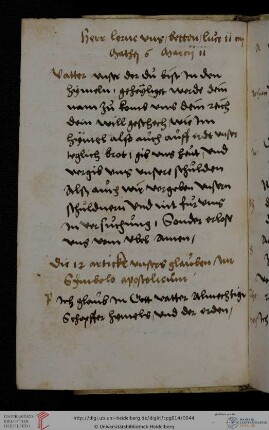 Herr lerne uns betten / luce 11 cap
Mathej 6 Marcij 11
Vatter unser der du bist in den
hymeln / geheyliget werde dein
nam zu kom uns dein reich
dein will geschech wie im
hymel also auch auff erdt unser
teglich brot / gib uns heut / und
vergib uns unsere schulden
Als auch wir vergeben unsern
schuldnern und nit für uns
in versuchung / Sonder erlose
uns vom ubel Amen /
Die 12 artickel unsers glauben im
Symbolo apostolicum
Ich glaub in Gott vatter Almechtige
Schepffer hymels und der erden /
http://digi.ub.uni-heidelberg.de/diglit/cpg814/0044
© Universitätsbibliothek Heidelberg